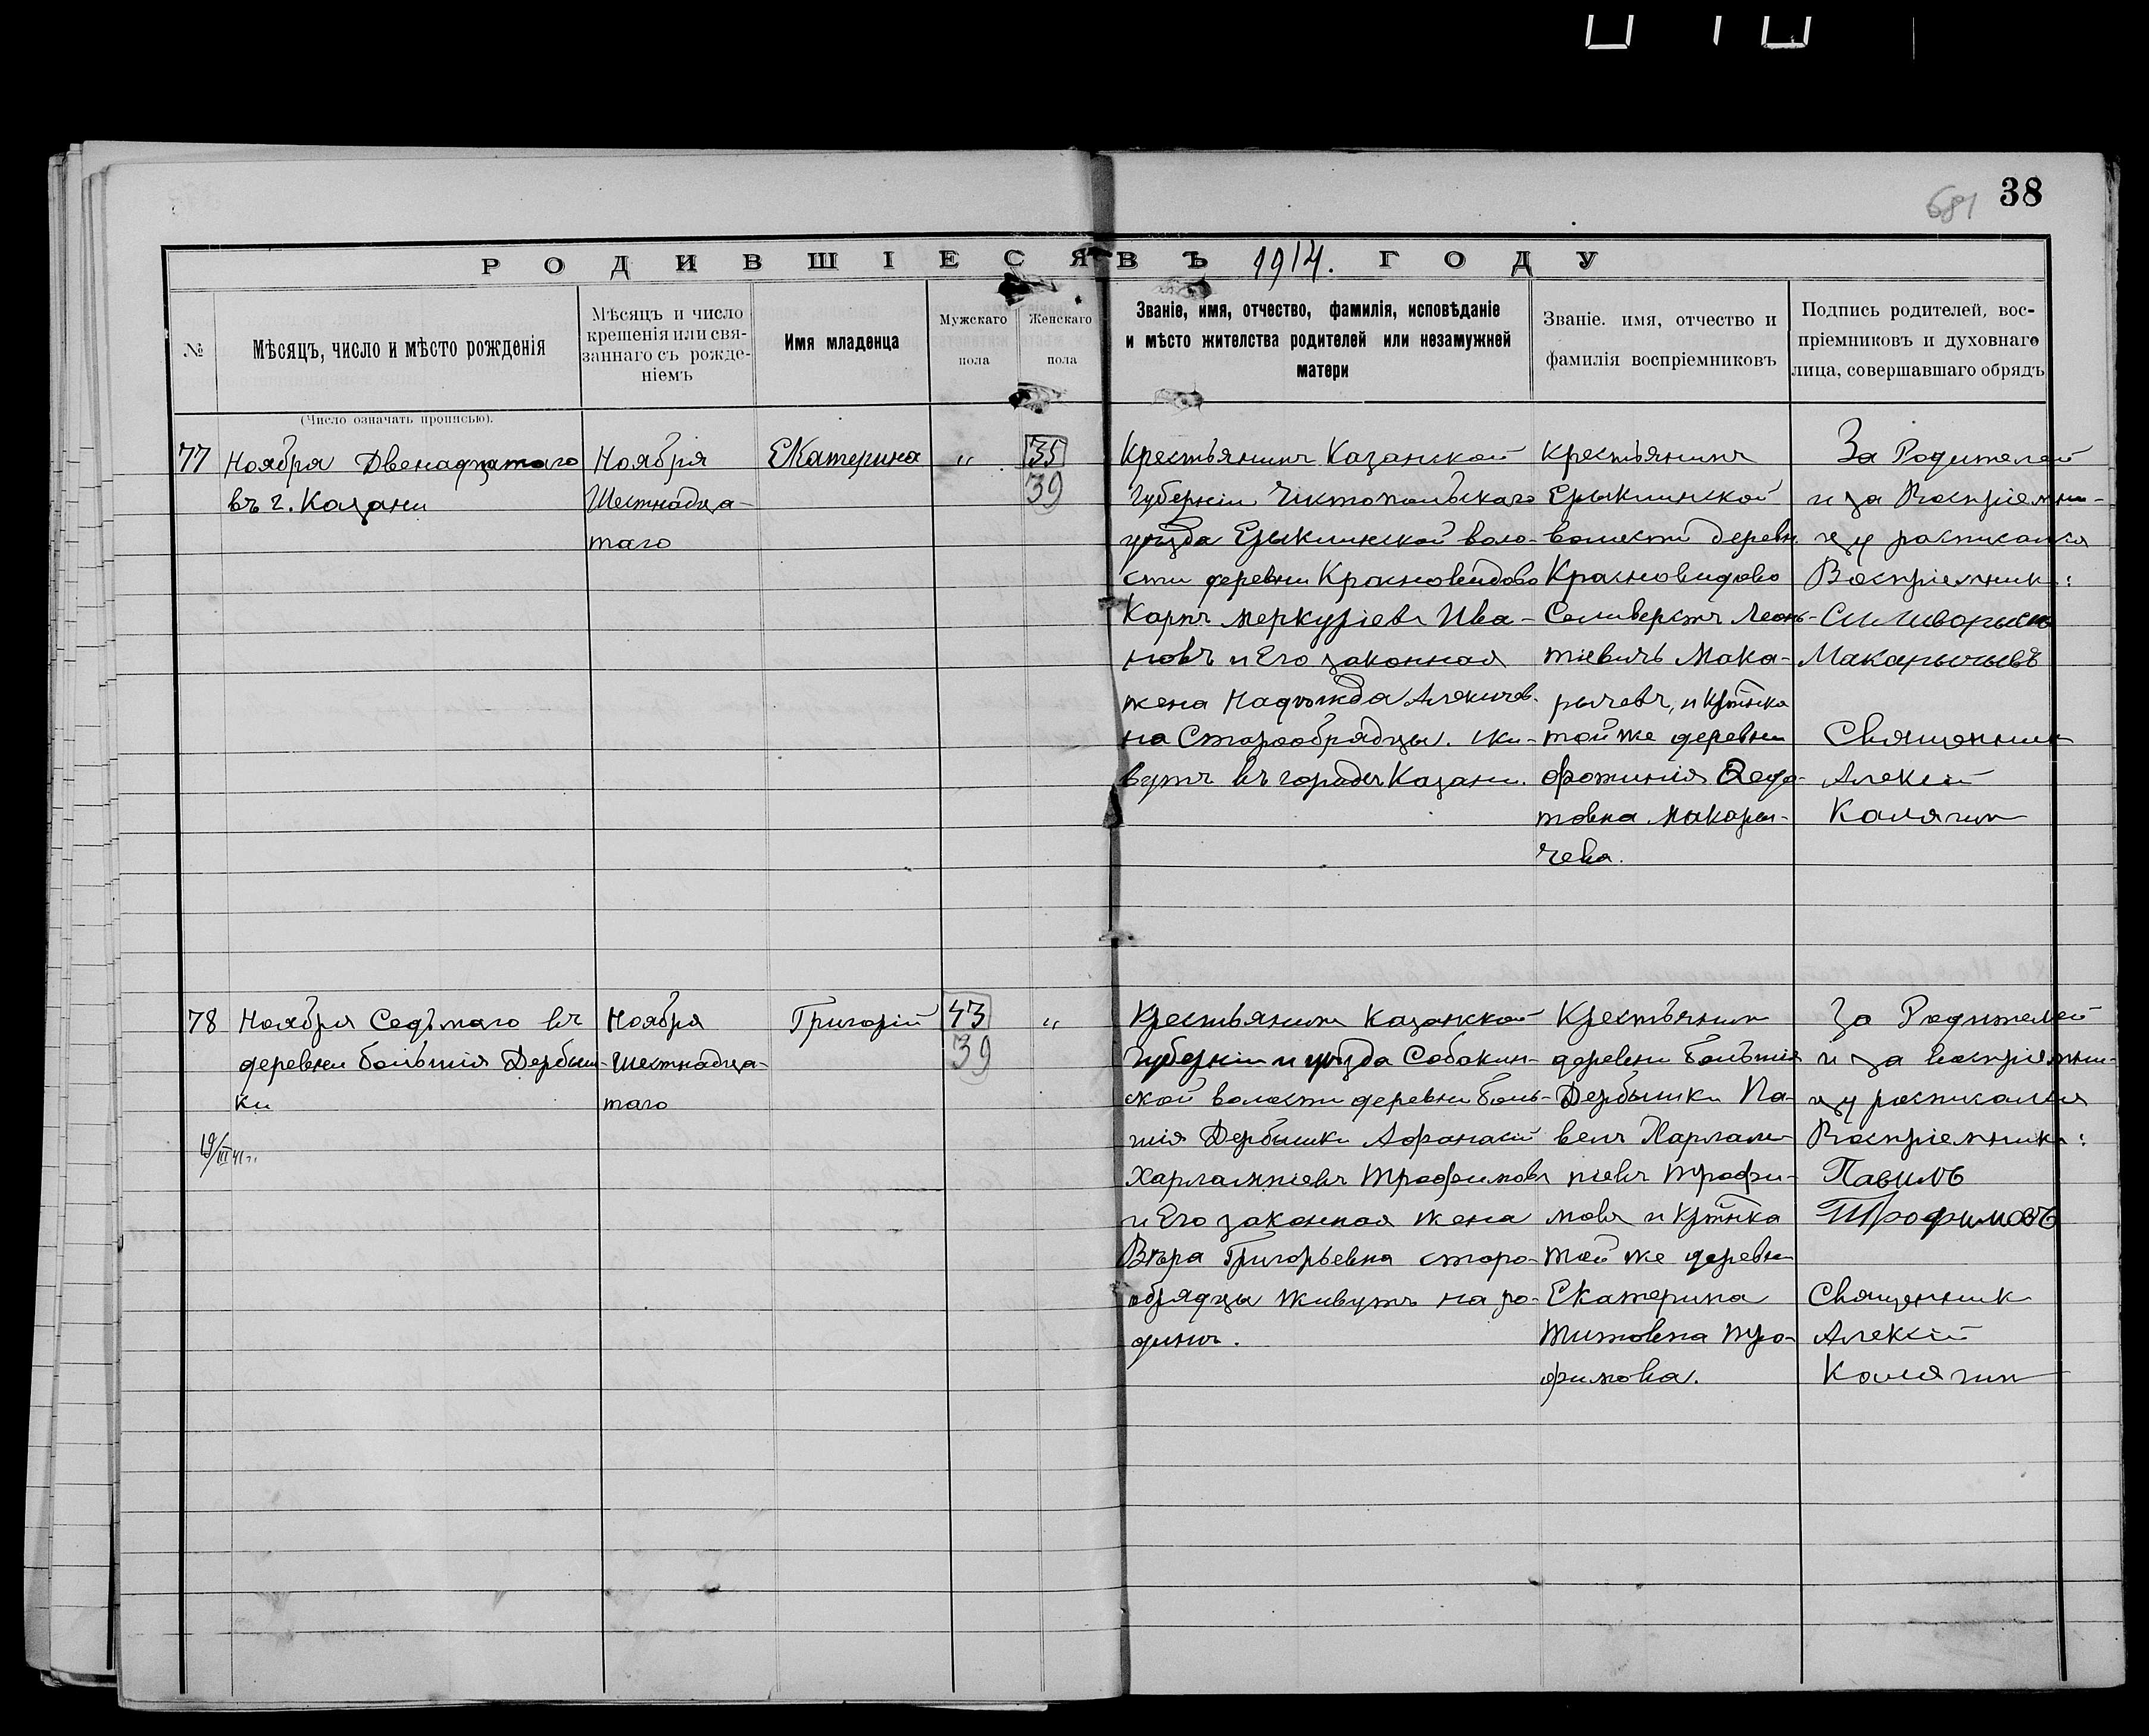 681 38
РОДИВШІЕСЯ ВЪ 1914. ГОДУ
№
Мѣсяцъ, число и мѣсто рожденія
(Число означать прописью).
Мѣсяцъ и число
крещенія или свя-
заннаго съ рожде-
ніемъ
Имя младенца
Мужскаго
пола
Женскаго
пола
Званіе, имя, отчество, фамилія, исповѣданіе
и мѣсто жителства родителей или незамужней
матери
Званіе. имя, отчество и
фамилія воспріемниковъ
Подпись родителей, вос-
пріемниковъ и духовнаго
лица, совершавшаго обрядъ
77
Ноября Двенадцатаго
въ г. Казани
Ноября
Шестнадца-
таго
Екатерина
"
35
39
Крестьянинъ Казанской
Губерніи Чистопольскаго
уѣзда Ерыклинской воло-
сти деревни Красновидово
Карпъ Меркуріевъ Ива-
новъ и Его законная
жена Надѣжда Алексѣев-
на Старообрядцы. жи-
вутъ въ городѣ Казани.
Крестьянинъ
Ерыклинской
волости дерев.
Красновидово
Селиверстъ Леонь-
тіевичъ Мака-
рычевъ, и Кр-тянка
той же деревни
Фотинія Федо-
товна Макары-
чева.
За Родителей
и за Воспріемни-
цу росписался
Воспріемник:
Силиворысть
Макарычывъ
Священник
Алексій
Калягин
78
Ноября Седьмаго въ
деревни большія Дербыш-
ки
19/III 41 г.
Ноября
Шестнадца-
таго
Григорій
43
39
"
Крестьянинъ Казанской
Губерніи и уѣзда Собакин-
ской волости деревни боль-
шія Дербышки Афанасій
Харлампіевъ Трофимовъ
и Его законная жена
Вѣра Григорьевна старо-
обрядцы живутъ на ро-
динѣ.
Крестьянин
деревни большія
Дербышки Па-
велъ Харлам-
піевъ Трофи-
мовъ и Кр-тянка
той же деревни
Екатерина
Титовна Тро-
фимова.
За Родителей
и за воспріемни-
цу росписался
Воспріемникъ:
Павилъ
Трофимовъ
Священник
Алексій
Калягин